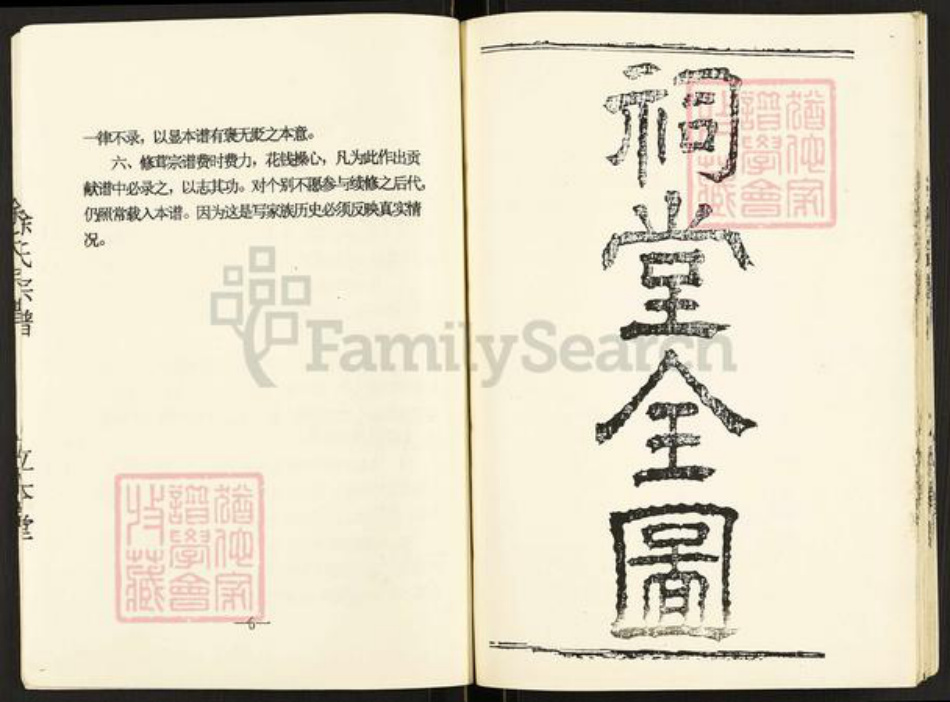 一律不录，以显本谱有褒无贬之本意。
六、修葺宗谱费时费力，花钱操心，凡为此作出贡
献谱中必录之，以志其功。对个别不愿参与续修之后代，
仍照常载入本谱。因为这是写家族历史必须反映真实情
况。
—6—
徐氏宗譜
堂
祠堂全圖
猶他家
譜學會
收藏
猶他家
譜學會
收藏
FamilySearch